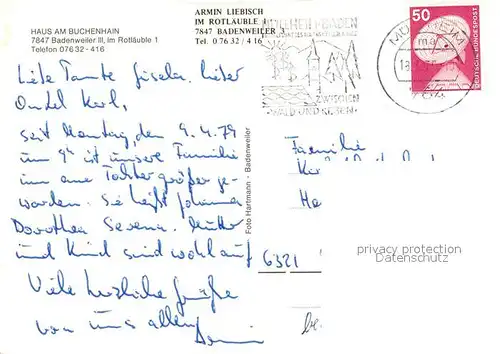 HAUS AM BUCHENHAIN
7847 Badenweiler III, Im Rotläuble 1
Telefon 07632 - 416
ARMIN LIEBISCH
IM ROTLÄUBLE 1
7847 BADENWEILER 3
Tel. 07632 / 416
MÜLLHEIM BADEN
ZWISCHEN
WALD UND REBEN
50
DEUTSCHE BUNDESPOST
Liebe Tante Gisela, lieber
Onkel Karl,
seit Montag, den 9.4.79
um 9h ist unsere Familie
um eine Tochter größer ge-
worden. Sie heißt Johanna
Dorothea Verena. Mutter
und Kind sind wohl auf
Viele herzliche Grüße
von uns allen
Armin
Foto Hartmann - Badenweiler
Familie
Kar
He
6321
privacy protection
Datenschutz